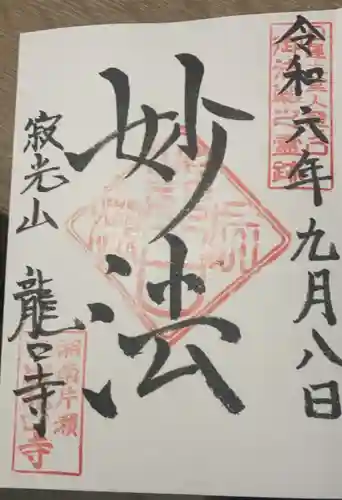 令和六年九月八日
妙法
寂光山
龍口寺
湘南片瀬